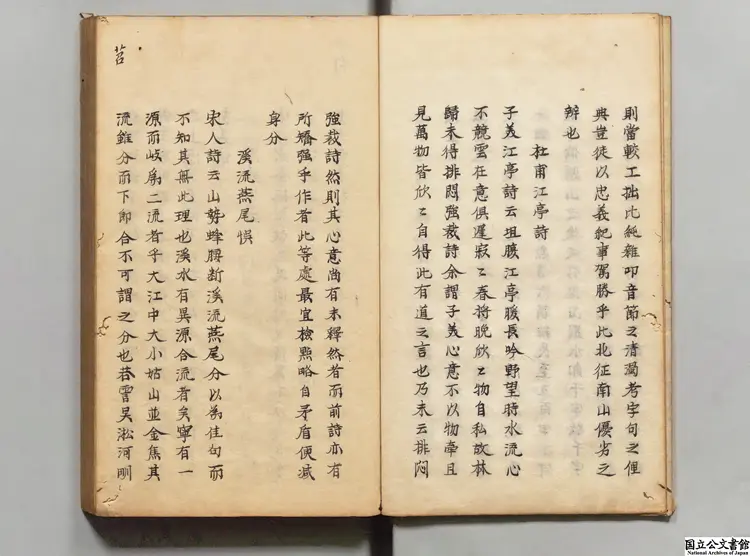 則當較工拙比純雜叩音節之清濁考字句之俚
典豈徒以忠義紀事駕勝乎此北征南山優劣之
辨也
杜甫江亭詩
子美江亭詩云坦腹江亭暖長吟野望時水流心
不競雲在意俱遲寂〻春將晚欣〻物自私故林
歸未得排悶強裁詩余謂子美心意不以物牽且
見萬物皆欣〻自得此有道之言也乃末云排悶
強裁詩然則其心意尚有未釋然者而前詩亦有
所矯强乎作者此等處最宜檢點略自矛盾便減
身分
溪流燕尾悞
宋人詩云山勢蜂腰斷溪流燕尾分以爲佳句而
不知其無此理也溪水有異源合流者矣寧有一
源而岐爲二流者乎大江中大小姑山並金焦其
流雖分而下即合不可謂之分也苕霅吳淞河剛
苕
国立公文書館
National Archives of Japan